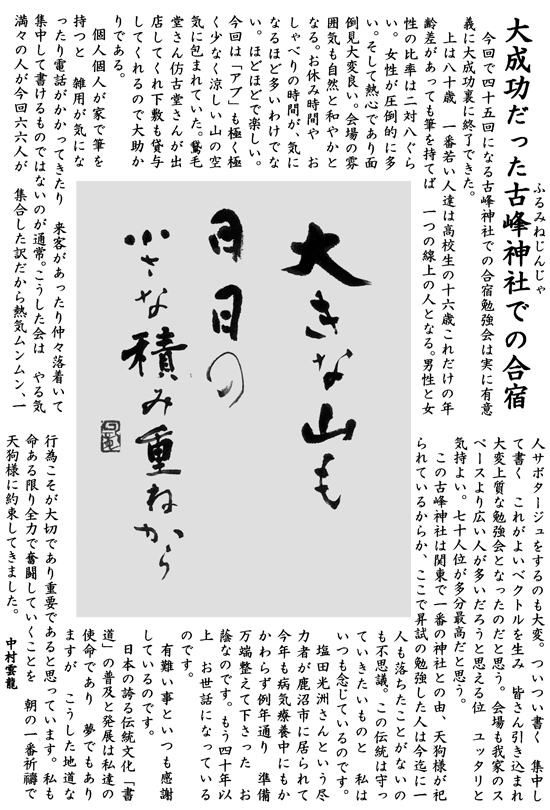 大成功だった古峰神社での合宿
ふるみねじんじゃ
今回で四十五回になる古峰神社での合宿勉強会は実に有意
義に大成功裏に終了できた。
上は八十歳　一番若い人達は高校生の十六歳これだけの年
齢差があっても筆を持てば　一つの線上の人となる。男性と女
性の比率は二対八ぐら
い。女性が圧倒的に多
い。そして熱心であり面
倒見大変良い。会場の雰
囲気も自然と和やかと
なる。お休み時間や　お
しゃべりの時間が、気に
なるほど多いわけでな
い。ほどほどで楽しい。
今回は「アブ」も極く極
く少なく涼しい山の空
気に包まれていた。鵞毛
堂さん仿古堂さんが出
店してくれ下敷も貸与
してくれるので大助か
りである。
個人個人が家で筆を
持つと　雑用が気にな
ったり電話がかかってきたり　来客があったり仲々落着いて
集中して書けるものではないのが通常。こうした会は　やる気
満々の人が今回六六人が　集合した訳だから熱気ムンムン、一
大きな山も
日日の
小さな積み重ねから
人サボタージュをするのも大変。ついつい書く　集中し
て書く　これがよいベクトルを生み　皆さん引き込まれ
大変上質な勉強会となったのだと思う。会場も我家のス
ペースより広い人が多いだろうと思える位　ユッタリと
気持よい。七十人位が多分最高だと思う。
この古峰神社は関東で一番の神社との由、天狗様が祀
られているからか、ここで昇試の勉強した人は今迄に一
人も落ちたことがないの
も不思議。この伝統は守っ
ていきたいものと　私は
いつも念じているのです。
塩田光洲さんという尽
力者が鹿沼市に居られて
今年も病気療養中にもか
かわらず例年通り　準備
万端整えて下さった　お
蔭なのです。もう四十年以
上　お世話になっている
のです。
有難い事といつも感謝
しているのです。
日本の誇る伝統文化「書
道」の普及と発展は私達の
使命であり　夢でもあり
ますが　こうした地道な
行為こそが大切であり重要であると思っています。私も
命ある限り全力で奮闘していくことを　朝の一番祈禱で
天狗様に約束してきました。　中村雲龍